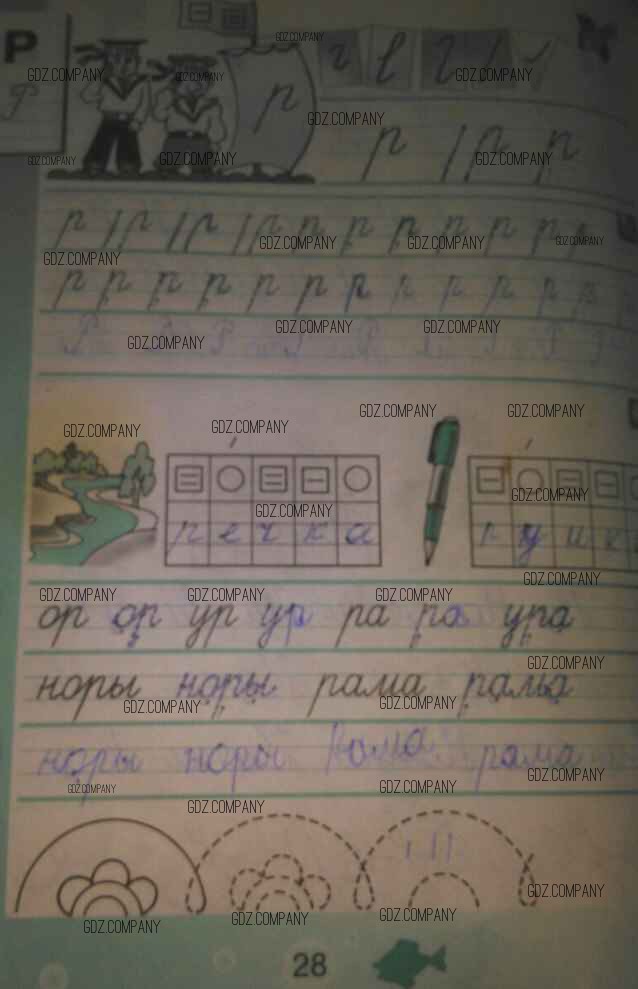 Р
р
р р р
р р р р р р р р р
р р р р р р р р р р
р е ч к а
р у ч к
ор ор ур ур ра ра ура
норы норы рама рама
норы норы рама рама
28
GDZ.COMPANY